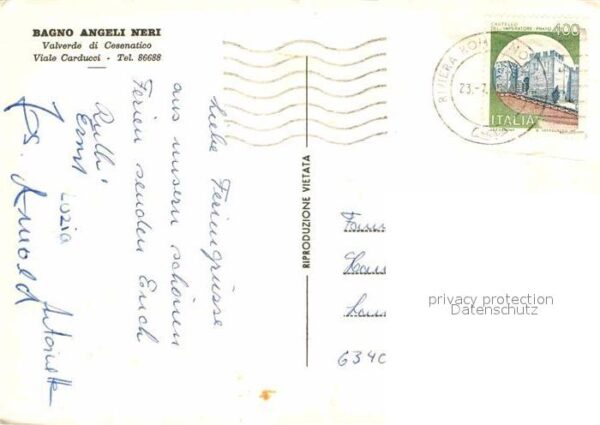 BAGNO ANGELI NERI
Valverde di Cesenatico
Viale Carducci - Tel. 86688
Liebe Feriengrüsse
aus unsern schönen
Ferien senden Euch
Ruthli
Ernst Luzia
Fs. Arnold Antoinette
RIPRODUZIONE VIETATA
CASTELLO
DEL IMPERATORE - PRATO
400
ITALIA
RIVIERA ROM
23.-7.
Fam
634
privacy protection
Datenschutz